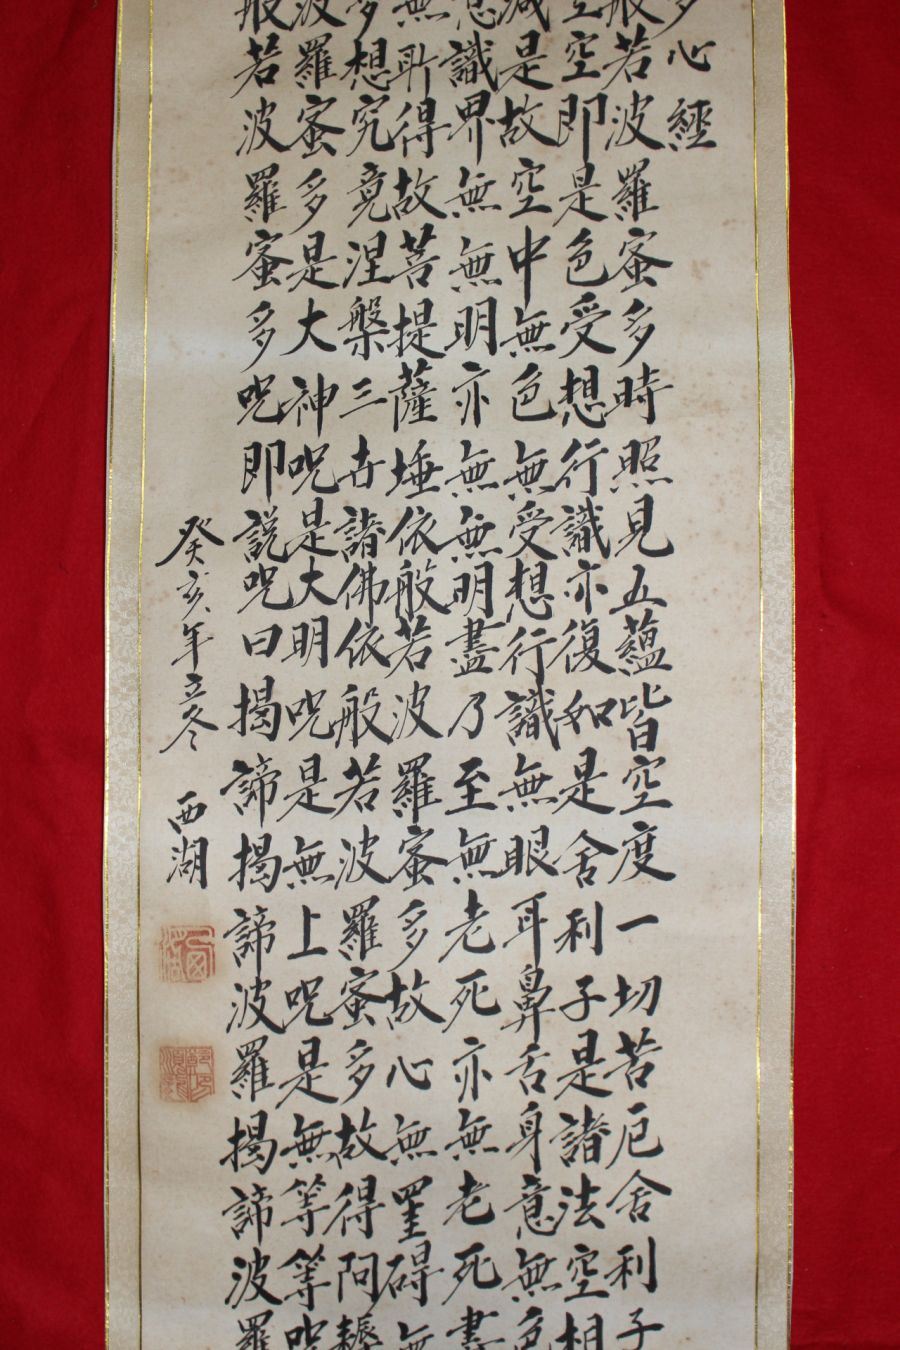 多心經
般若波羅蜜多時照見五蘊皆空度一切苦厄舍利子
空空即是色受想行識亦復如是舍利子是諸法空相
減是故空中無色無受想行識無眼耳鼻舌身意無色
意識界無無明亦無無明盡乃至無老死亦無老死盡
無所得故菩提薩埵依般若波羅蜜多故心無罣碍無
夢想究竟涅槃三世諸佛依般若波羅蜜多故得阿耨
波羅蜜多是大神呪是大明呪是無上呪是無等等呪
般若波羅蜜多呪即説呪曰揭諦揭諦波羅揭諦波羅
癸亥年立冬 西湖